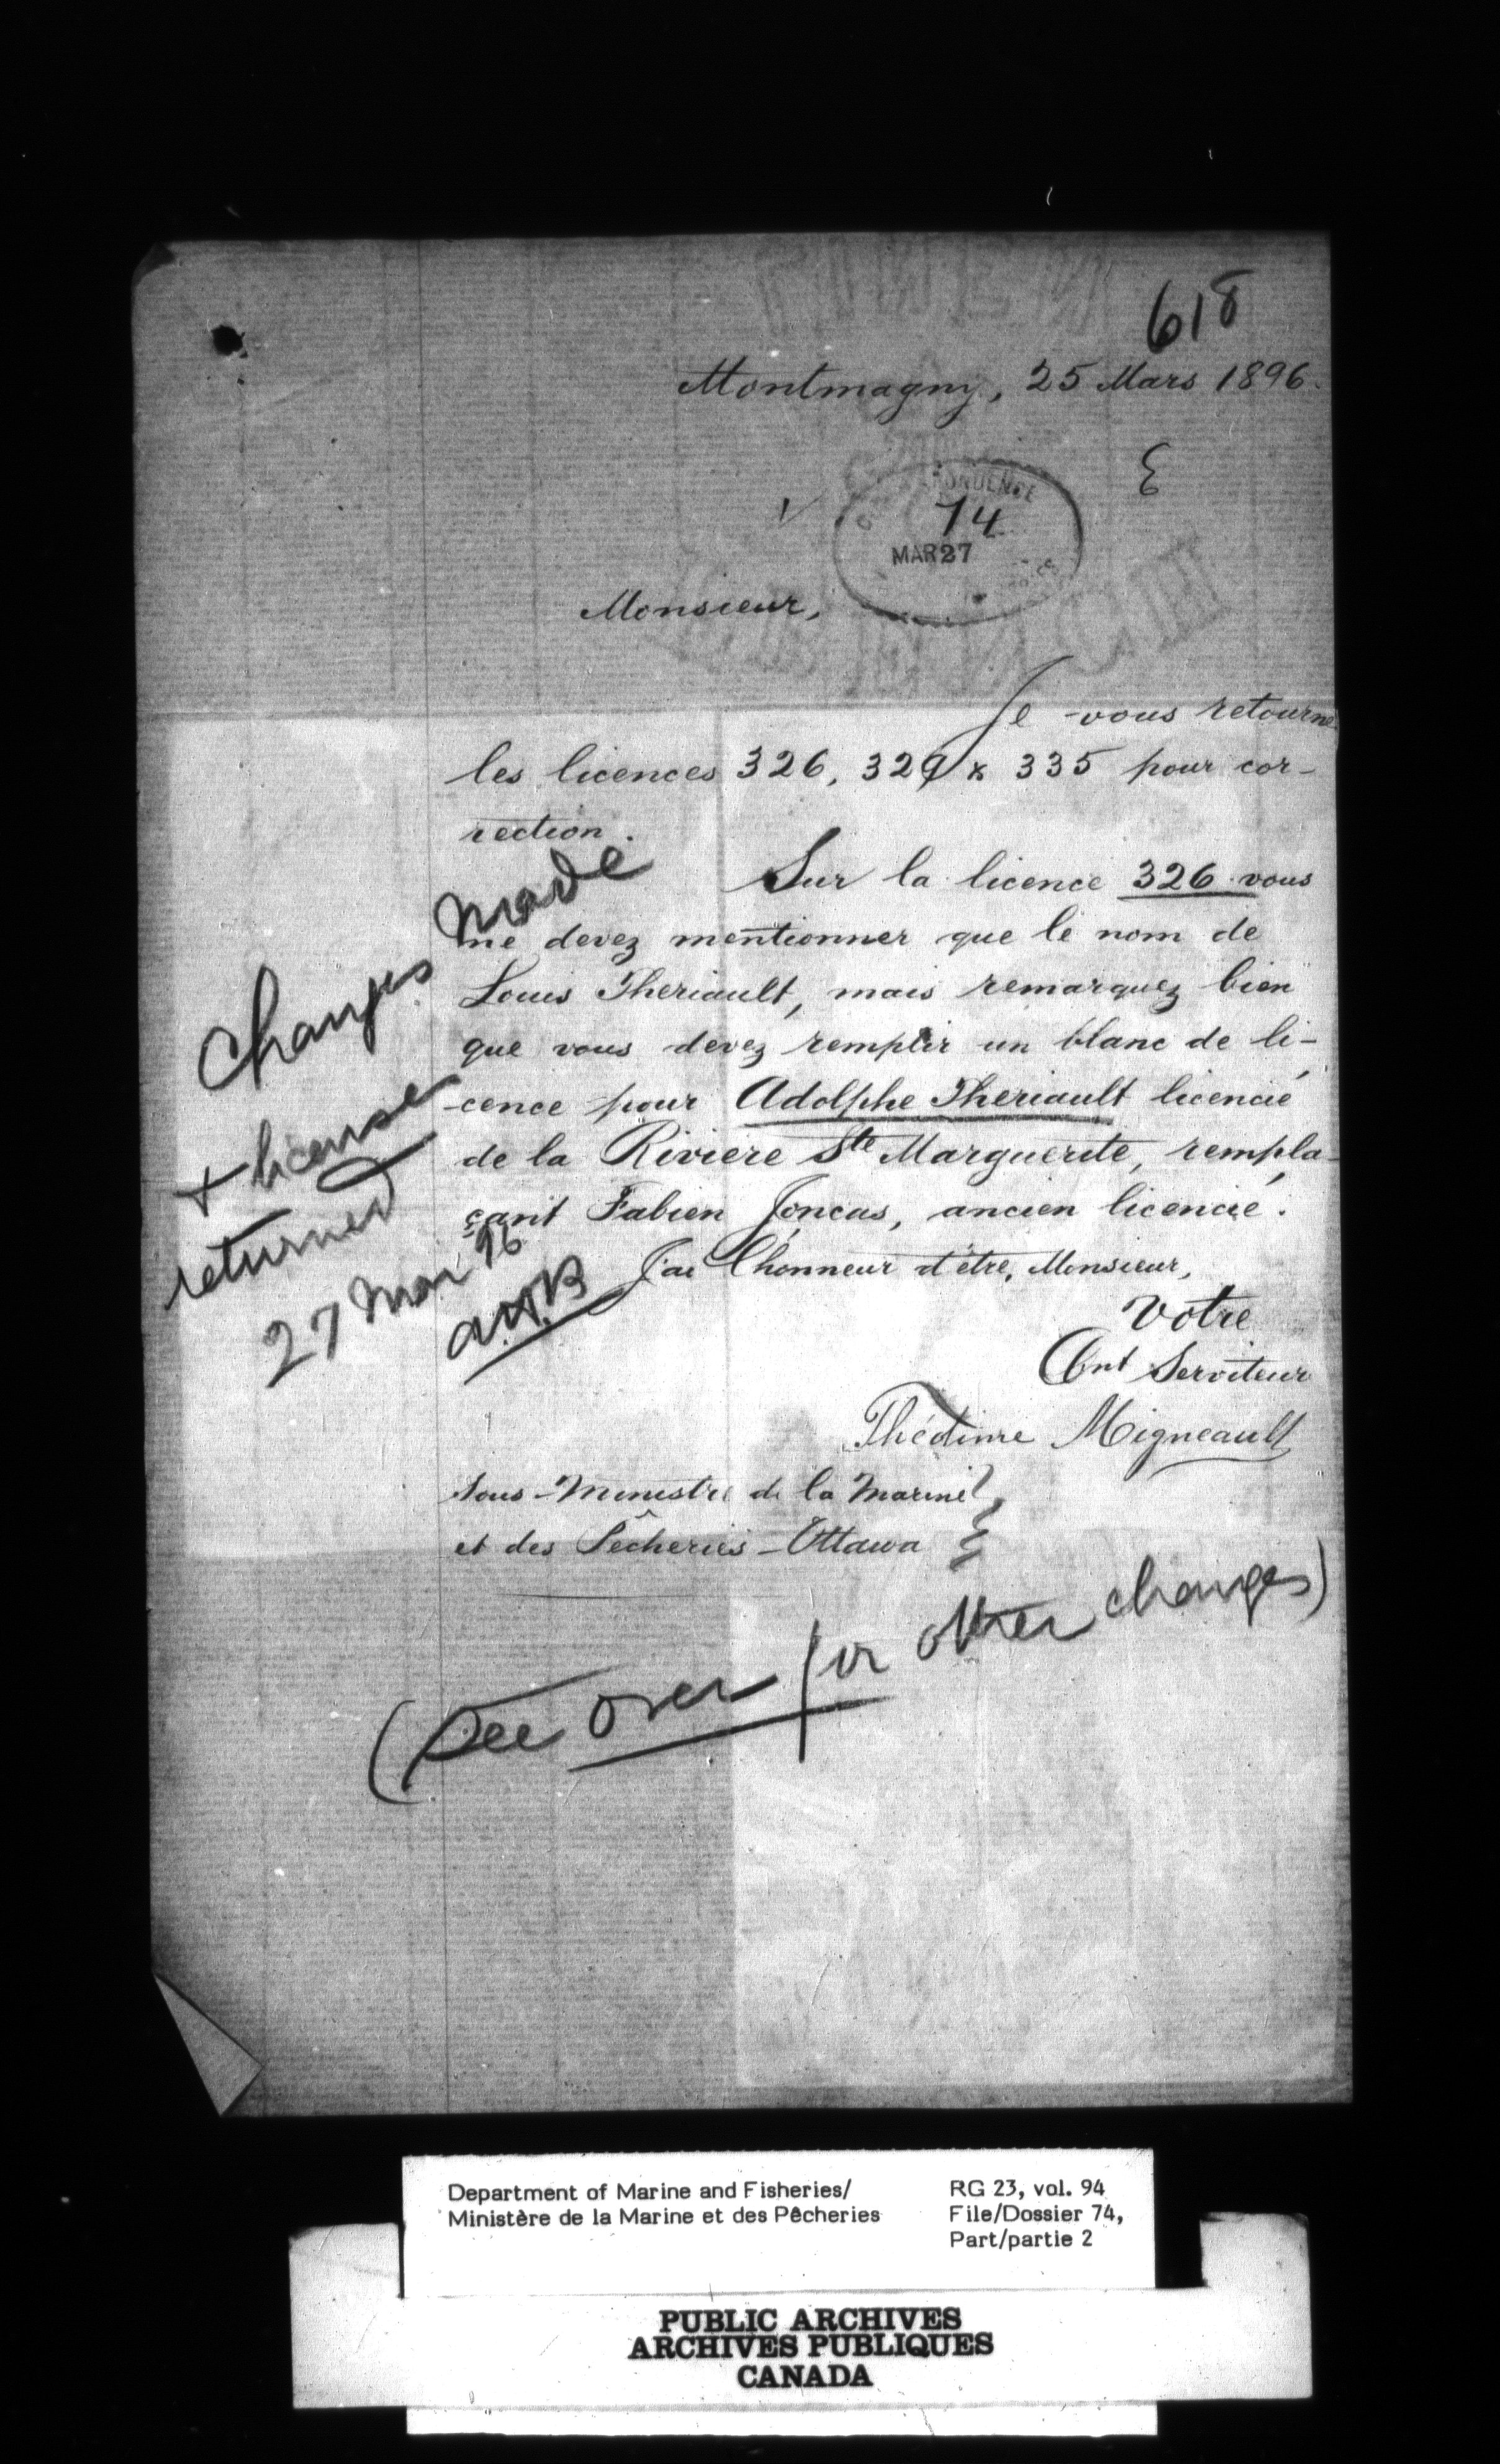 618
Montmagny, 25 Mars 1896.
E
74
MAR 27
Monsieur,
Je vous retourne
les licences 326, 329 & 335 pour cor-
rection.
Sur la licence 326 vous
ne devez mentionner que le nom de
Louis Theriault, mais remarquez bien
que vous devez remplir un blanc de li-
cence pour Adolphe Theriault licencié
de la Riviere Ste Marguerite, rempla-
çant Fabien Joncas, ancien licencié.
J'ai l'honneur d'être, Monsieur,
Votre
Obnt Serviteur
Migneault
Sous-Ministre de la Marine
et des Pêcheries - Ottawa
Changes made
+ license
returned
27 Mar 96
(See over for other changes)
Department of Marine and Fisheries/
Ministère de la Marine et des Pêcheries
RG 23, vol. 94
File/Dossier 74,
Part/partie 2
PUBLIC ARCHIVES
ARCHIVES PUBLIQUES
CANADA